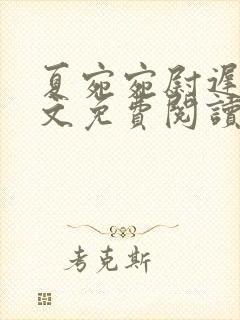 夏宛宛尉遲
文免費閱讀
考克斯